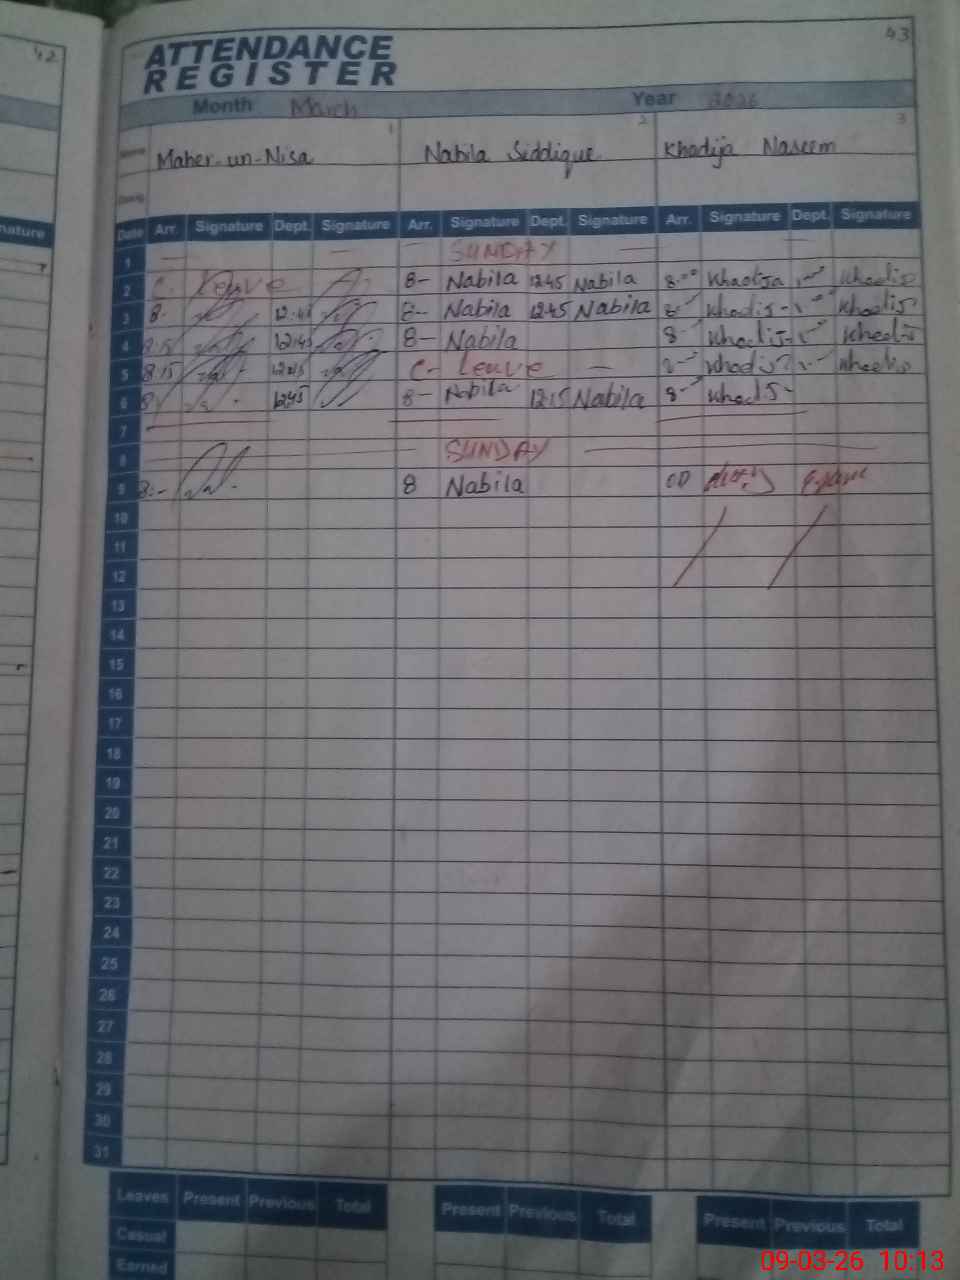 42
43
ATTENDANCE
REGISTER
Month March Year 2026
1 2 3
Name Maher-un-Nisa Nabila Siddique Khadija Naseem
Desig
nature
Date Arr. Signature Dept. Signature Arr. Signature Dept. Signature Arr. Signature Dept. Signature
1 — — — SUNDAY — —
2 C. Leave 8- Nabila 12.45 Nabila 8-00 Khadija Khadija
3 8- 12.45 8- Nabila 12.45 Nabila 8- Khadija Khadija
4 8.15 12.45 8- Nabila 8- Khadija Khadija
5 8.15 12.45 C- Leave — Khadija Khadija
6 8 12.45 8- Nabila 12.15 Nabila 8- Khadija
7
8 SUNDAY
9 8:- 8 Nabila OD duty
10
11
12
13
14
15
16
17
18
19
20
21
22
23
24
25
26
27
28
29
30
31
Leaves Present Previous Total Present Previous Total Present Previous Total
Casual
Earned
09-03-26 10:13